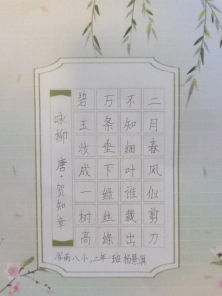 咏柳 唐·贺知章
碧玉妆成一树高
万条垂下绿丝绦
不知细叶谁裁出
二月春风似剪刀
南八小,二年一班 杨慧